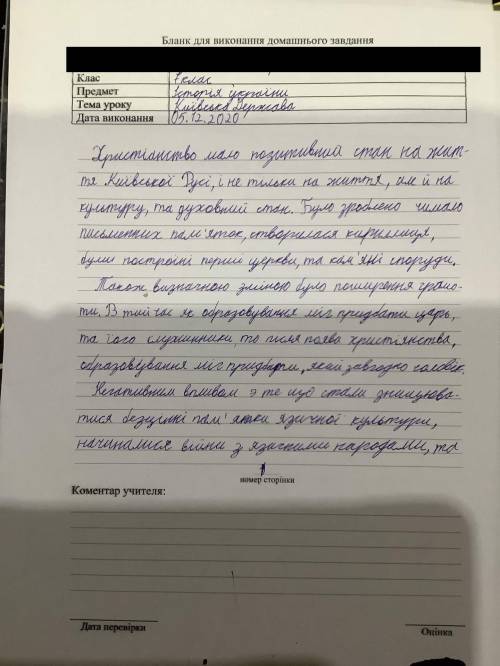 Бланк для виконання домашнього завдання
Клас 7 клас
Предмет Історія України
Тема уроку Київська Держава
Дата виконання 05.12.2020
Християнство мало позитивний стан на жит-
тя Київської Русі, і не тільки на життя, ай й на
культуру, та духовний стан. Було зроблено чимало
письменних пам'яток, створилася кирилиця,
були построїні перші церкви, та кам'яні споруди.
Також, визначною зміною було поширення грамо-
ти. В той час як образовування міг придбати царь,
та його слушинники то після поява християнства,
образовування міг придбати, який завгодно чоловік.
Негативним впливом э те що стали знищюва-
тися безцінні пам'ятки язичної культури,
начиналися війни з язичними народами, та
1
номер сторінки
Коментар учителя:
Дата перевірки
Оцінка